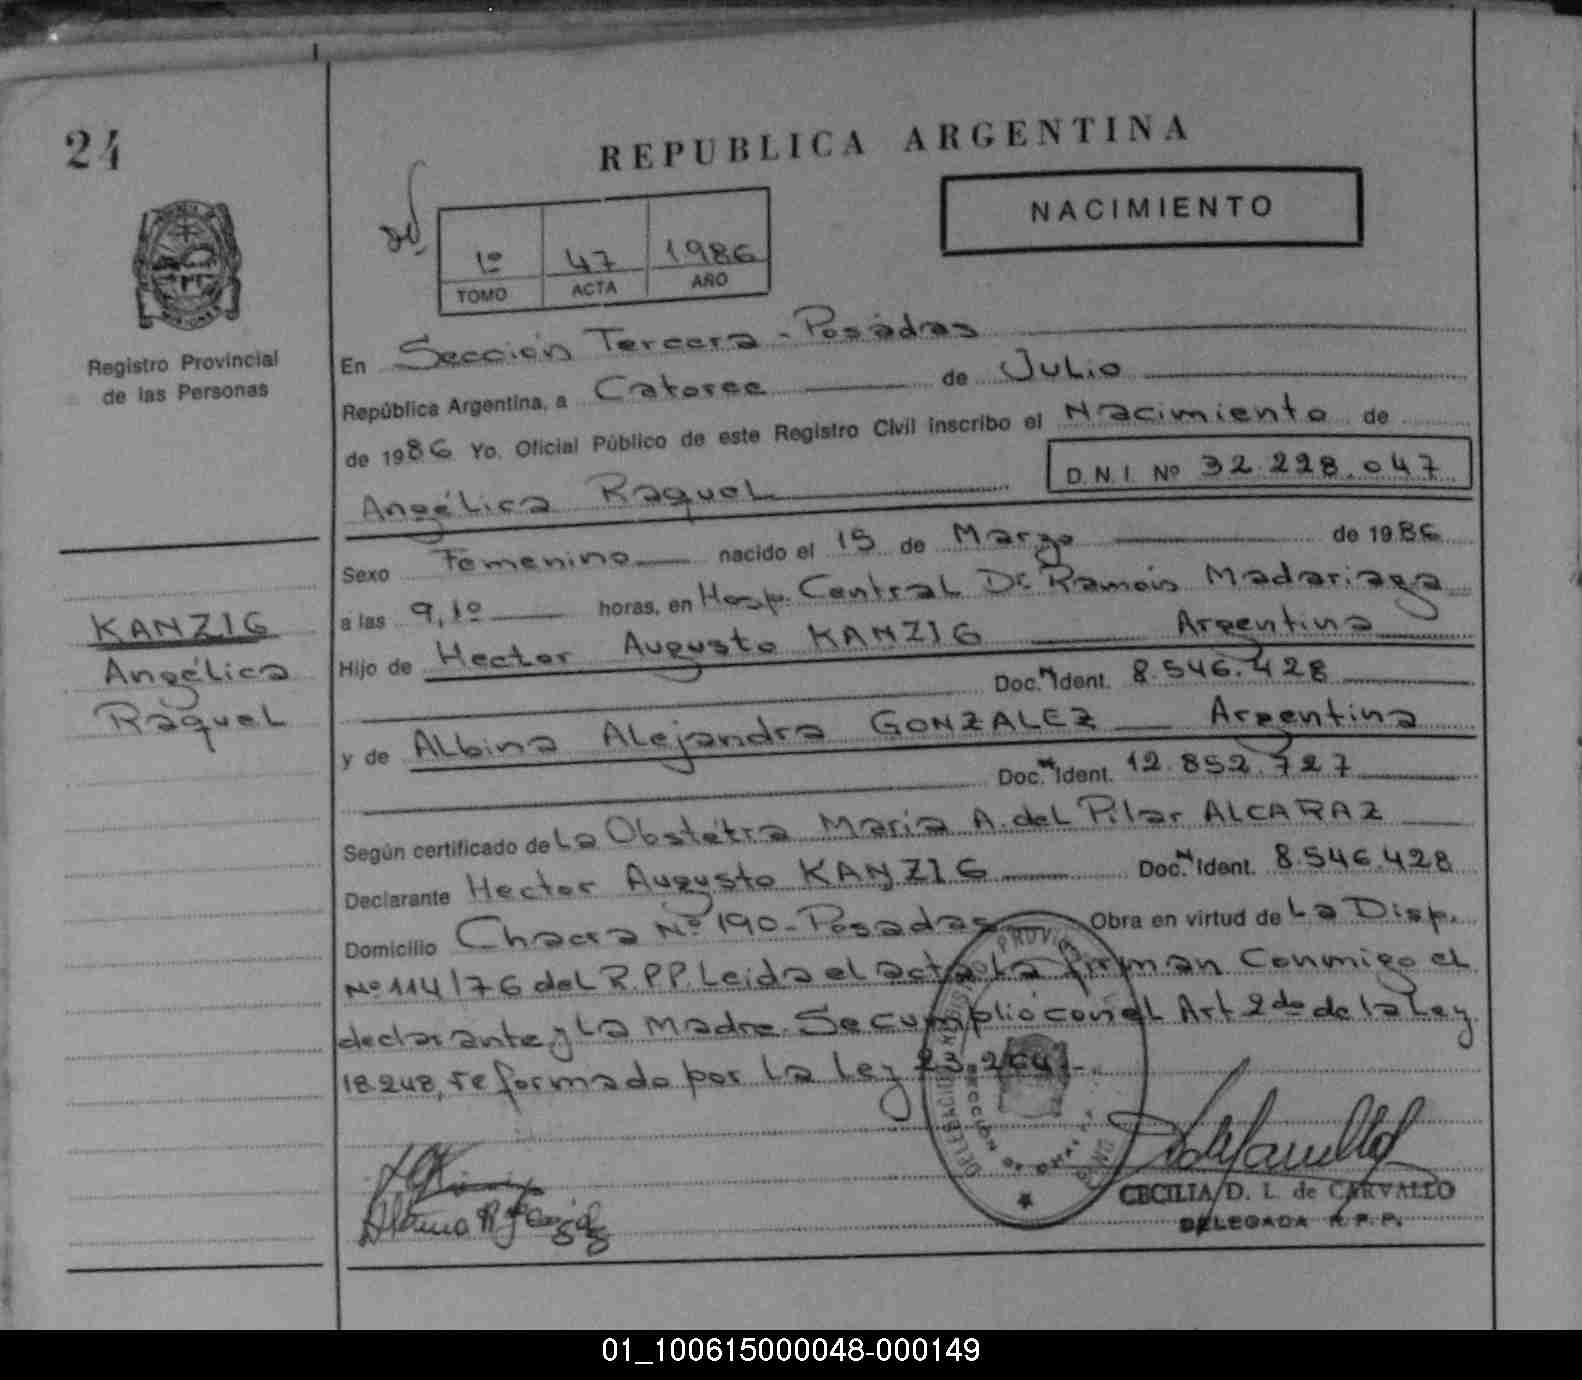 24
REPUBLICA ARGENTINA
NACIMIENTO
1º 47 1986
TOMO ACTA AÑO
Registro Provincial
de las Personas
KANZIG
Angélica
Raquel
En Sección Tercera - Posadas
República Argentina, a Catorce de Julio
de 1986 Yo, Oficial Público de este Registro Civil inscribo el Nacimiento de
Angélica Raquel D.N.I. Nº 32.228.047
Sexo Femenino nacido el 15 de Marzo de 1986
a las 9,10 horas, en Hosp. Central Dr Ramón Madariaga
Hijo de Hector Augusto KANZIG Argentina
Doc. Ident. 8.546.428
y de Albina Alejandra GONZALEZ Argentina
Doc. Ident. 12.852.727
Según certificado de La Obstétra Maria A. del Pilar ALCARAZ
Declarante Hector Augusto KANZIG Doc. Ident. 8.546.428
Domicilio Chacra Nº 190 - Posadas Obra en virtud de La Disp.
Nº 114/76 del R.P.P. Leida el acta La firman Conmigo el
declarante y La Madre. Se cumplió con el Art 2do de la Ley
18.248, reformado por La Ley 23.264.-
CECILIA D. L. de CARVALLO
DELEGADA R.P.P.
01_100615000048-000149